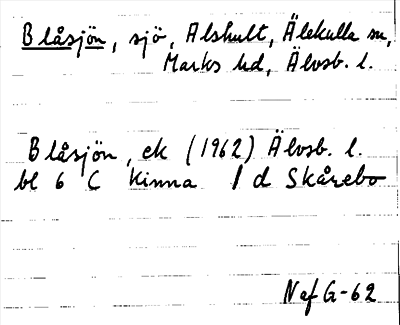 Blåsjön, sjö, Alshult, Älekulla sn,
Marks hd, Älvsb. l.
Blåsjön, ek (1962) Älvsb. l.
bl 6 C Kinna 1 d Skårebo
Naf G-62